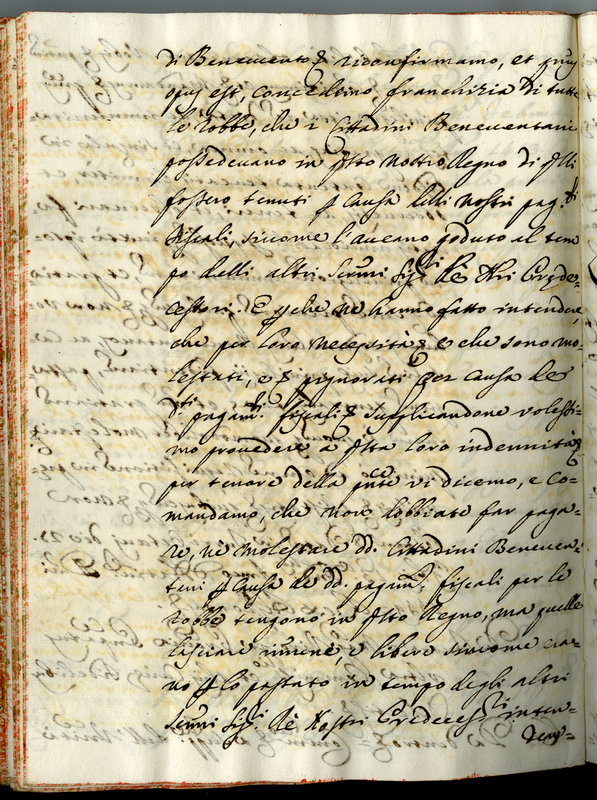 di Benevento & riconfirmamo, et quus
opus est, concedimo franchizia di tutte
le robbe, che i Cittadini Beneventani
possedevano in qsto nostro Regno di q.lli
fossero tenuti p causa delli nostri pag.ti
fiscali, sicome l'aveano goduto al tem
po delli altri Ser.mi Sig.ri Rè N'ri Prede=
cessori. E perche ne hanno fatto intendere,
che per loro necessità & e che sono mo=
lestati, e & pignorati per causa de
d.ti pagam.ti fiscali & supplicandone volessi=
mo provedere à qsta loro indennità &
per tenore della pnte vi dicemo, e co=
mandamo, che non debbiate far paga=
re, nè molestare dd. Cittadini Beneven=
tani p causa de dd. pagam.ti fiscali per le
robbe tengono in qsto Regno, ma quelle
lasciare immune, e libere sincome era=
no p lo passato in tempo degli altri
Ser.mi Sig.ri Rè Nostri Predecess.ri inten=